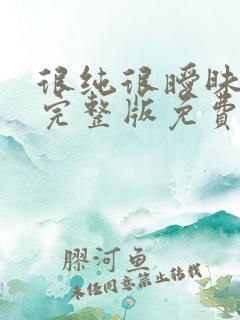 很纯很暧昧
完整版免费
胶河鱼
未经同意禁止转载